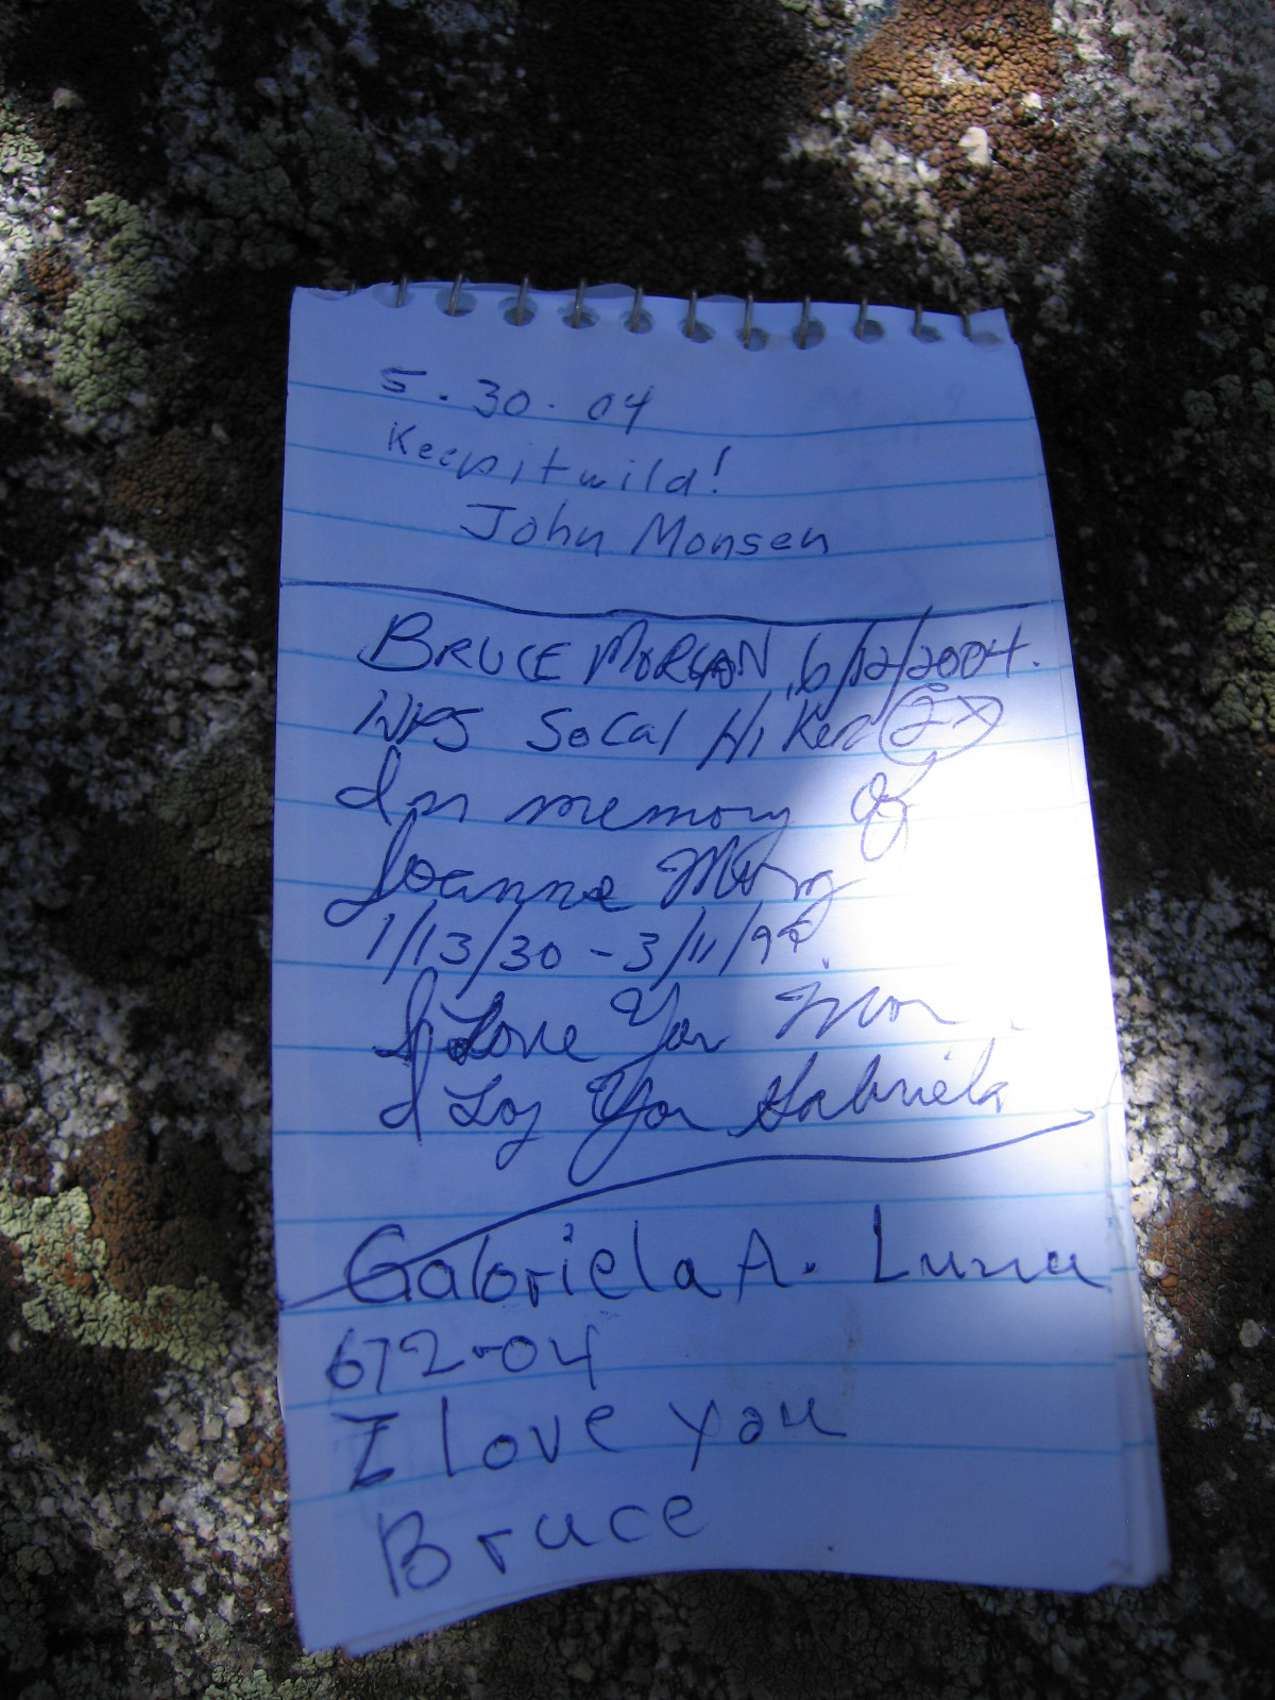 5.30.04
Keep it wild!
John Monsen
BRUCE MORGAN, 6/12/2004.
WPS SoCal Hiker 2X
In memory of
Joanne
1/13/30 - 3/11/99.
I Love You Mom
I Lov You Gabriela
Gabriela A. Luna
612-04
I love you
Bruce